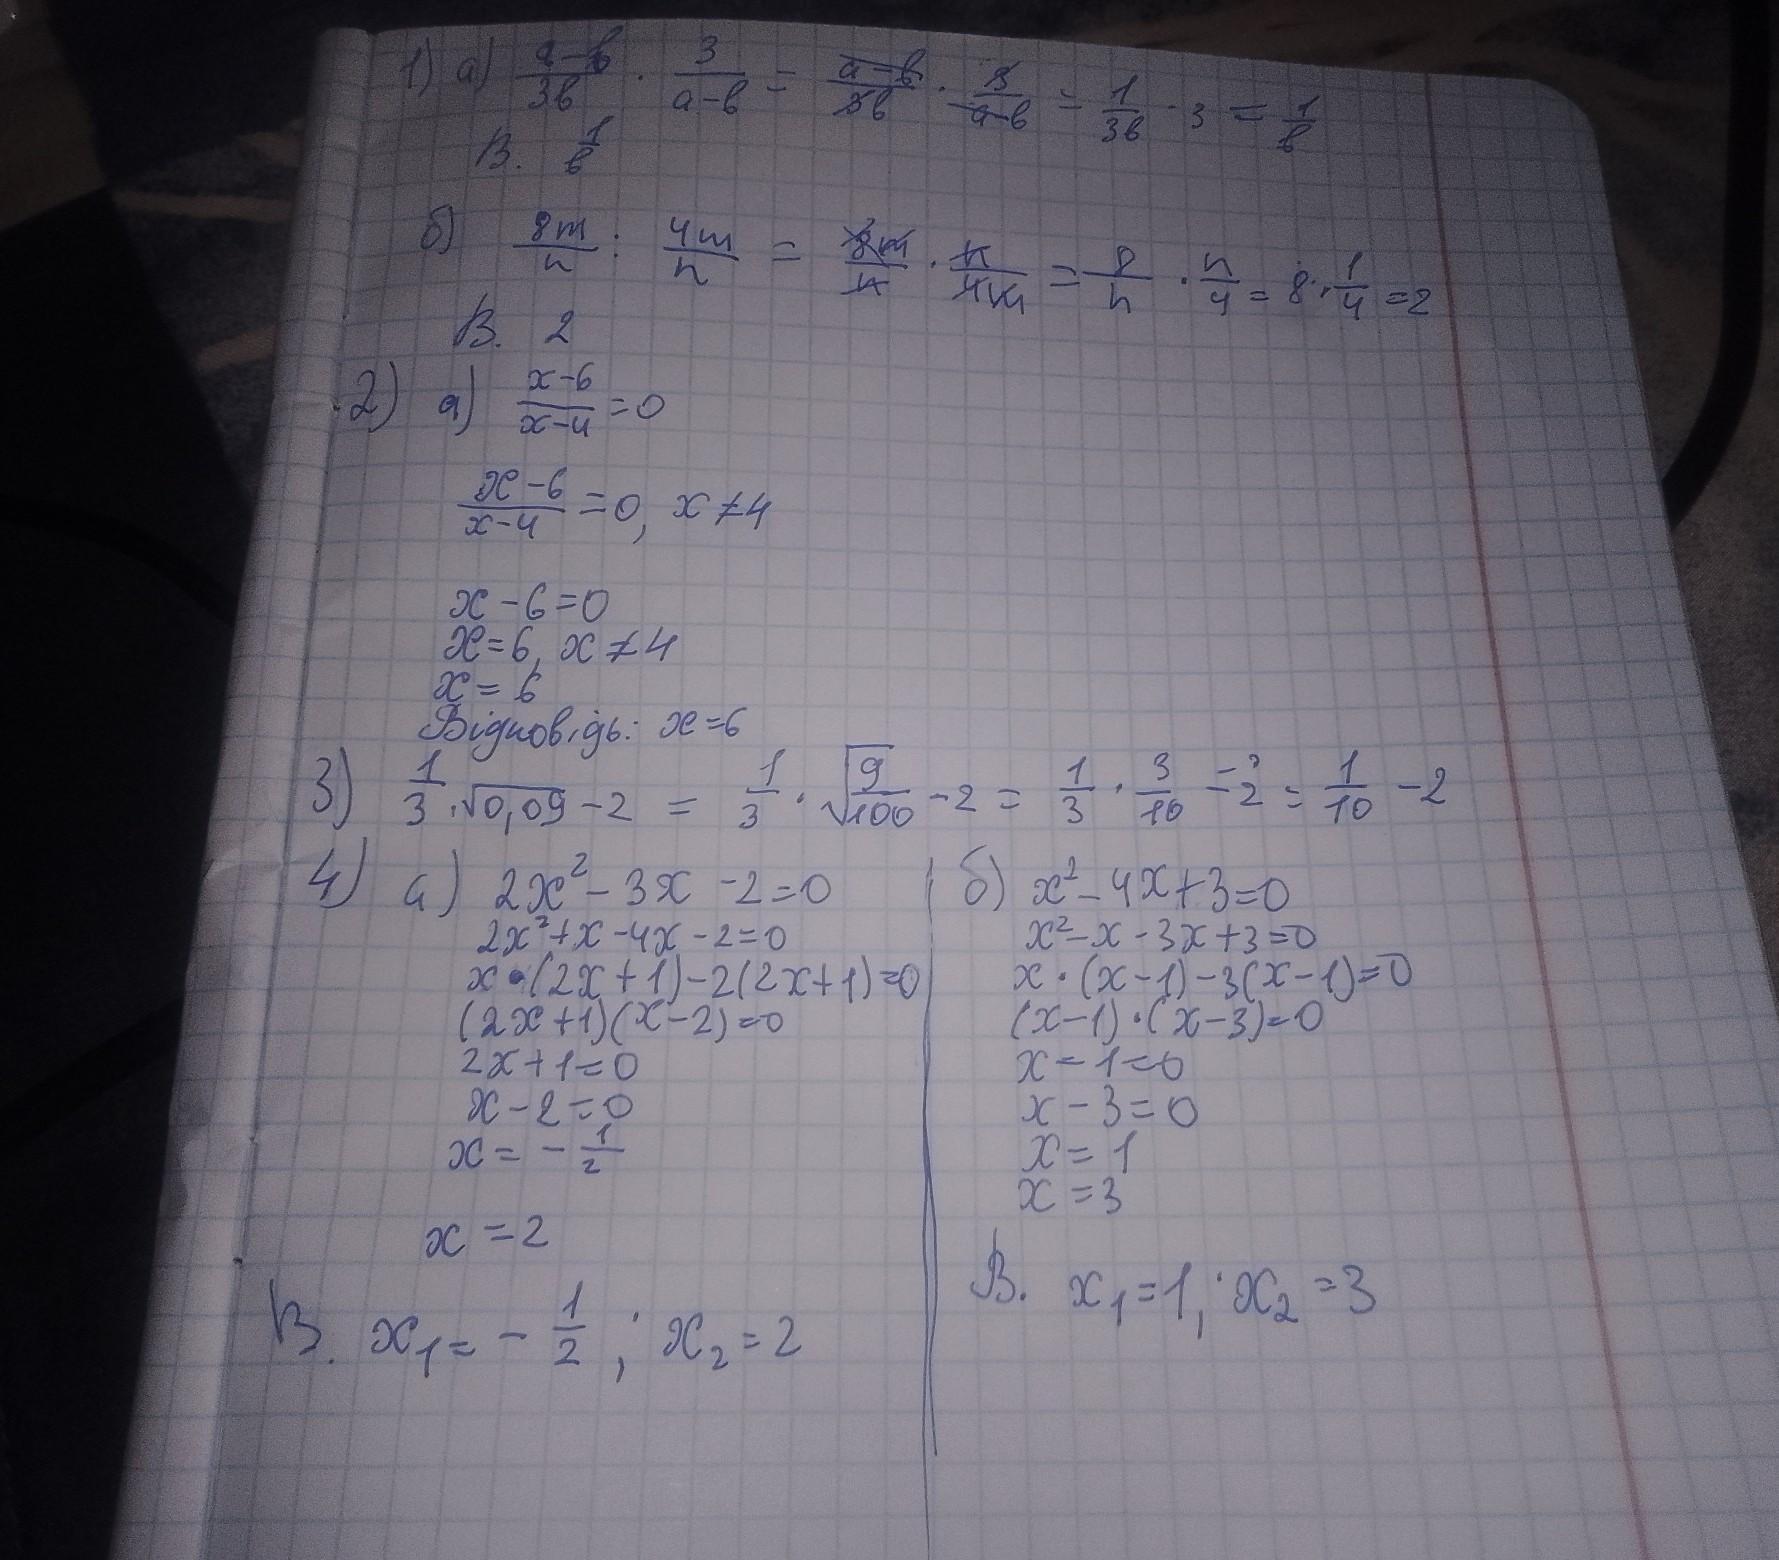 1) а) (a-b)/(3b) · 3/(a-b) = (a-b)/(3b) · 3/(a-b) = 1/(3b) · 3 = 1/b
В. 1/b
б) 8m/n : 4m/n = 8m/n · n/4m = 8/n · n/4 = 8 · 1/4 = 2
В. 2
2) а) (x-6)/(x-4) = 0
(x-6)/(x-4) = 0, x ≠ 4
x - 6 = 0
x = 6, x ≠ 4
x = 6
Відповідь: x = 6
3) 1/3 · √0,09 - 2 = 1/3 · √(9/100) - 2 = 1/3 · 3/10 - 2 = 1/10 - 2
4) а) 2x² - 3x - 2 = 0
2x² + x - 4x - 2 = 0
x · (2x + 1) - 2(2x + 1) = 0
(2x + 1)(x - 2) = 0
2x + 1 = 0
x - 2 = 0
x = - 1/2
x = 2
В. x₁ = - 1/2 ; x₂ = 2
б) x² - 4x + 3 = 0
x² - x - 3x + 3 = 0
x · (x - 1) - 3(x - 1) = 0
(x - 1) · (x - 3) = 0
x - 1 = 0
x - 3 = 0
x = 1
x = 3
В. x₁ = 1, x₂ = 3